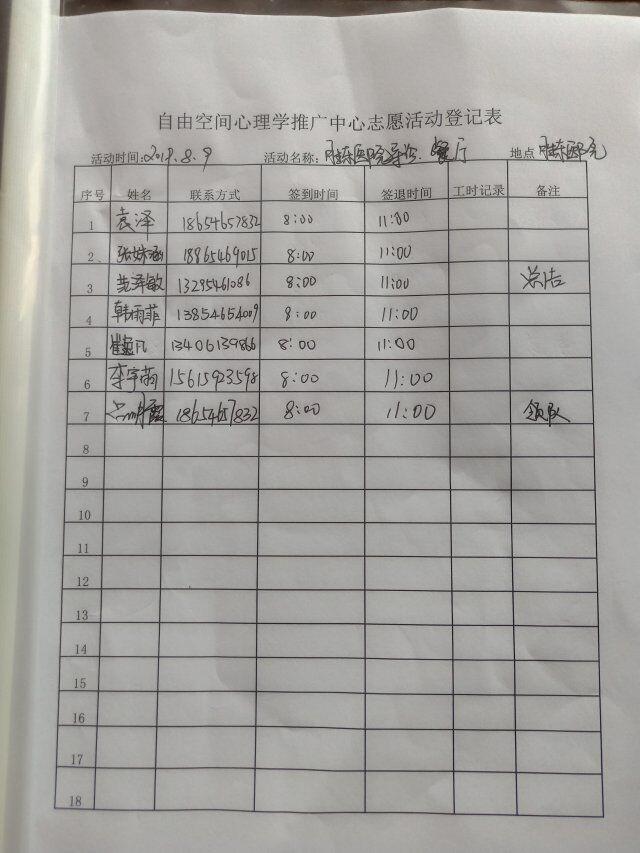 自由空间心理学推广中心志愿活动登记表
活动时间:2019.8.9 活动名称: 胜东医院导公、餐厅 地点 胜东医院
序号 姓名 联系方式 签到时间 签退时间 工时记录 备注
1 袁泽 18654657832 8:00 11:00
2、 张妹涵 18865469015 8:00 11:00
3 范泽敏 13295461086 8:00 11:00 总结
4 韩雨菲 13854654009 8:00 11:00
5 凡 13406139866 8:00 11:00
6 李宇萌 15615923598 8:00 11:00
7 明霞 18654657832 8:00 11:00 领队
8
9
10
11
12
13
14
15
16
17
18